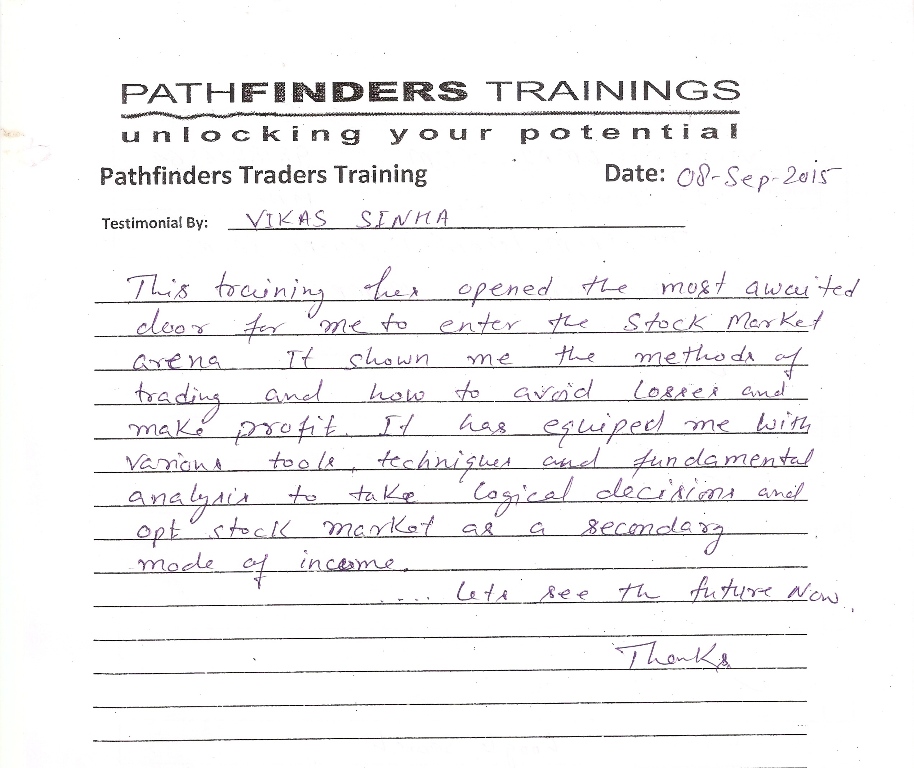 PATHFINDERS TRAININGS
unlocking your potential
Pathfinders Traders Training Date: 08-Sep-2015
Testimonial By: VIKAS SINHA
This training has opened the most awaited
door for me to enter the Stock Market
arena It shown me the methods of
trading and how to avoid losses and
make profit. It has equiped me with
various tools, techniques and fundamental
analysis to take logical decisions and
opt stock market as a secondary
mode of income.
.... Lets see th future Now.
Thanks